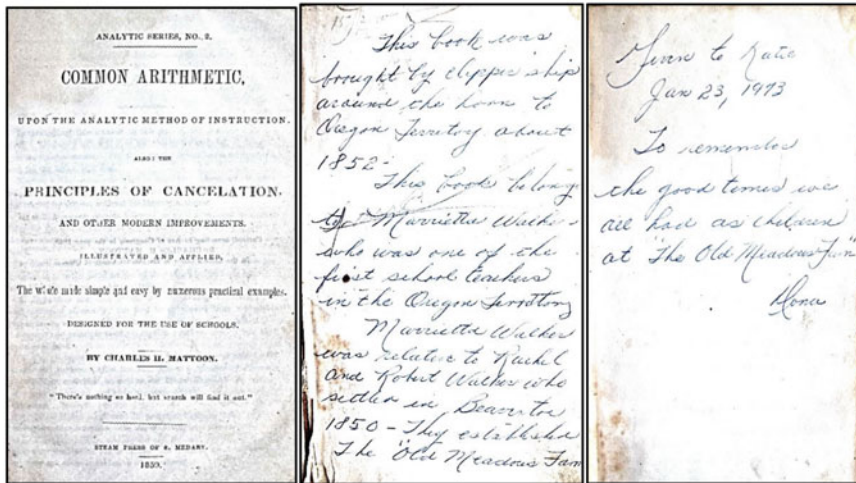 ANALYTIC SERIES, NO. 2.
COMMON ARITHMETIC,
UPON THE ANALYTIC METHOD OF INSTRUCTION.
ALSO: THE
PRINCIPLES OF CANCELATION,
AND OTHER MODERN IMPROVEMENTS.
ILLUSTRATED AND APPLIED.
The whole made simple and easy by numerous practical examples.
DESIGNED FOR THE USE OF SCHOOLS.
BY CHARLES H. MATTOON.
"There's nothing so hard, but search will find it out."
STEAM PRESS OF S. MEDARY.
1850.
This book was
brought by clipper ship
around the horn to
Oregon Territory about
1852-
This book belong
to Marrietta Walker -
who was one of the
first school teachers
in the Oregon Territory
Marrietta Walker
was relative to Rachel
and Robert Walker who
settled in Beaverton
1850 - They established
The "Old Meadows Farm
Given to Katie
Jan 23, 1973
To remember
the good times we
all had as children
at "The Old Meadows Farm"